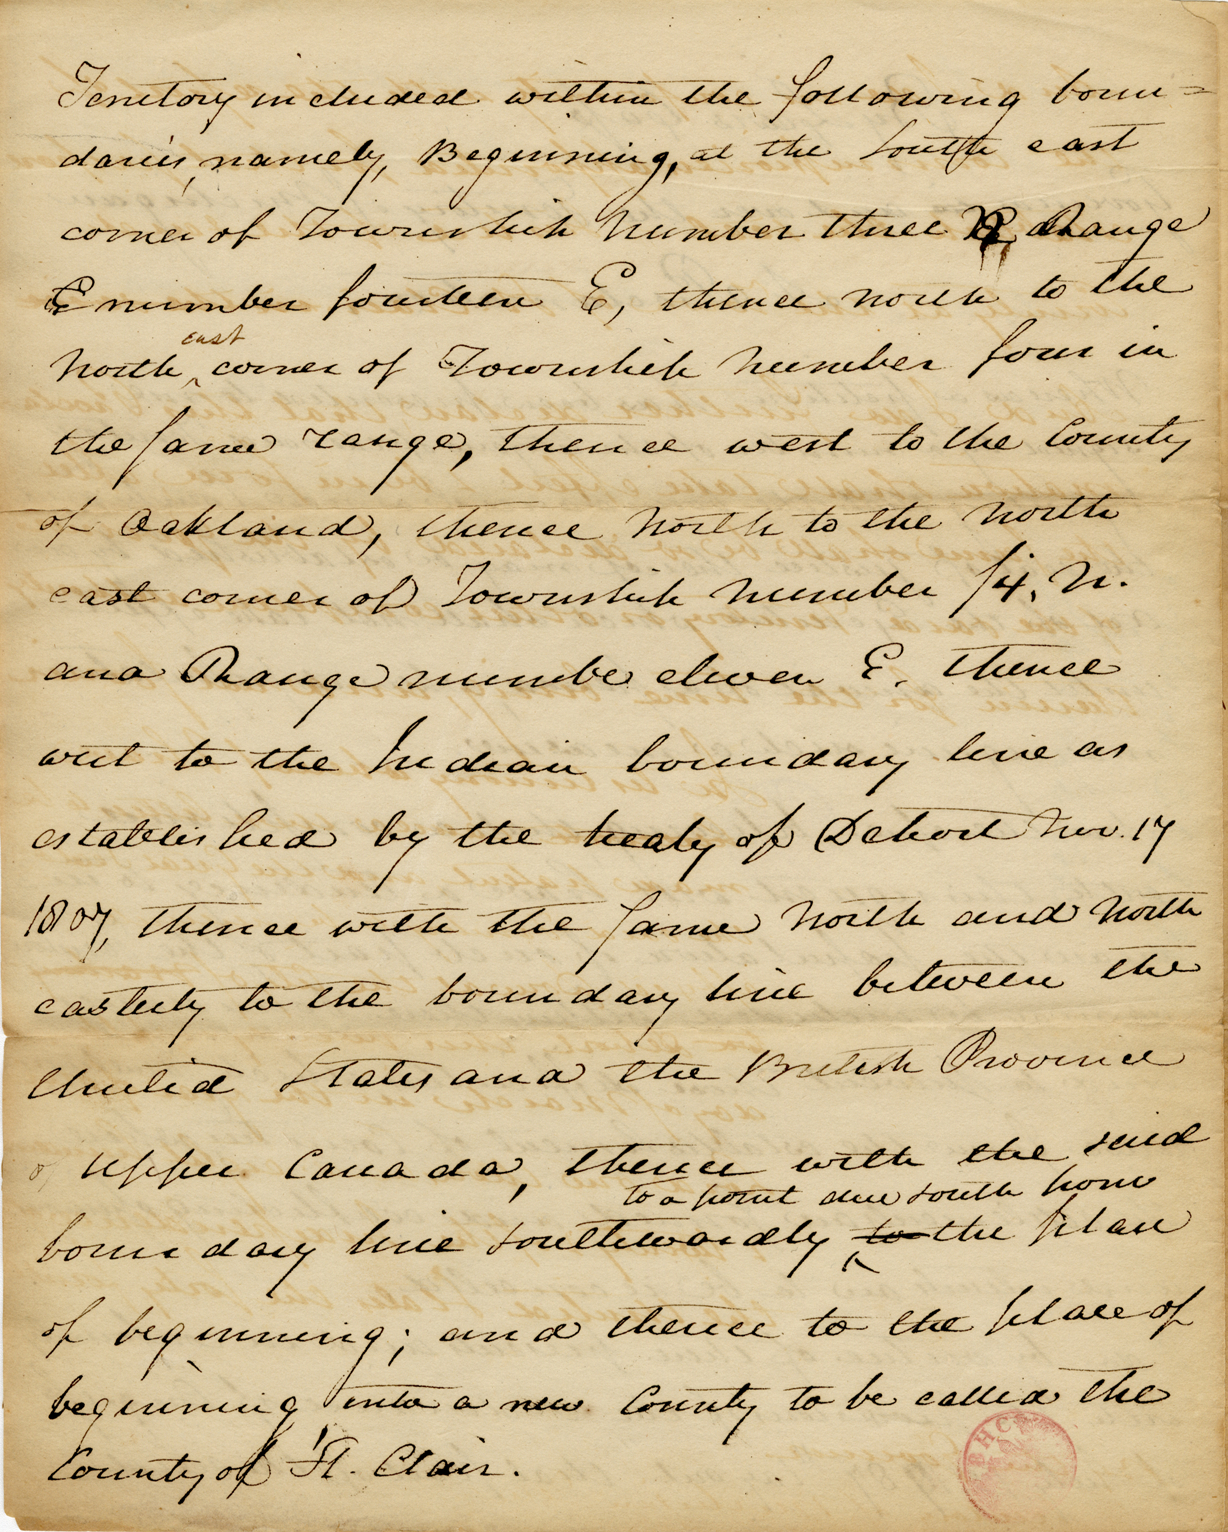 Territory included within the following boun=
daries, namely, Beginning, at the South east
corner of Township Number three N, Range
number fourteen E, thence north to the
east
North ^ corner of Township Number four in
the same range, thence west to the County
of Oakland, thence North to the North
east corner of Township Number 4, N.
and Range number eleven E. thence
west to the Indian boundary line as
established by the treaty of Detroit Nov. 17
1807, thence with the same North and North
easterly to the boundary line between the
United States and the British Province
of Upper Canada, thence with the said
to a point due south from
boundary line southwardly ^ to the place
of beginning; and thence to the place of
beginning into a new County to be called the
County of St. Clair.
BHC